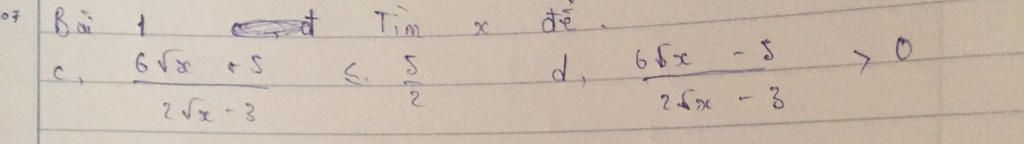 07 Bài 1 Tìm x để.
c, (6√x + 5)/(2√x - 3) ≤ 5/2 d, (6√x - 5)/(2√x - 3) > 0